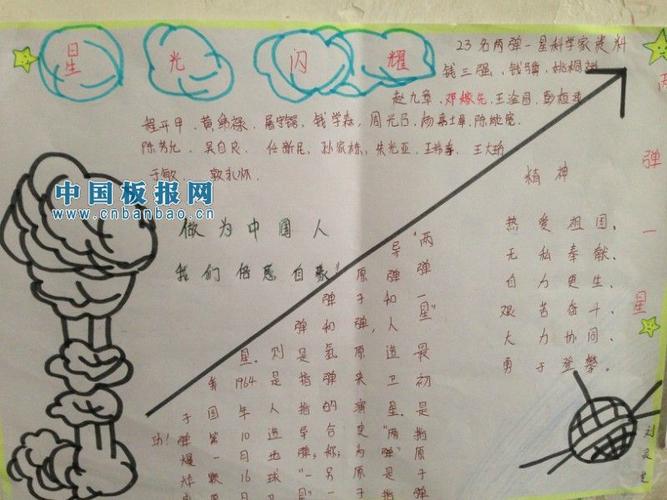 星光闪耀
23名两弹一星科学家资料
钱三强、钱骥、姚桐斌
赵九章、邓稼先、王淦昌、彭桓武
程开甲、黄纬禄、屠守锷、钱学森、周光召、杨嘉墀、陈能宽
陈芳允、吴自良、任新民、孙家栋、朱光亚、王希季、王大珩
于敏、郭永怀.
中国板报网
www.cnbanbao.cn
做为中国人
我们倍感自豪
精神
热爱祖国、
无私奉献、
自力更生、
艰苦奋斗、
大力协同、
勇于登攀。
两弹一星
"两
导弹
原弹弹
弹子和一
弹和弹,人星"
星,则是氢原造最
1964是指弹卫初
于国年人指的演星是
功!弹第10造导合变"两指
爆一月地弹;称;为弹"原
炸颗16球"一另原是于